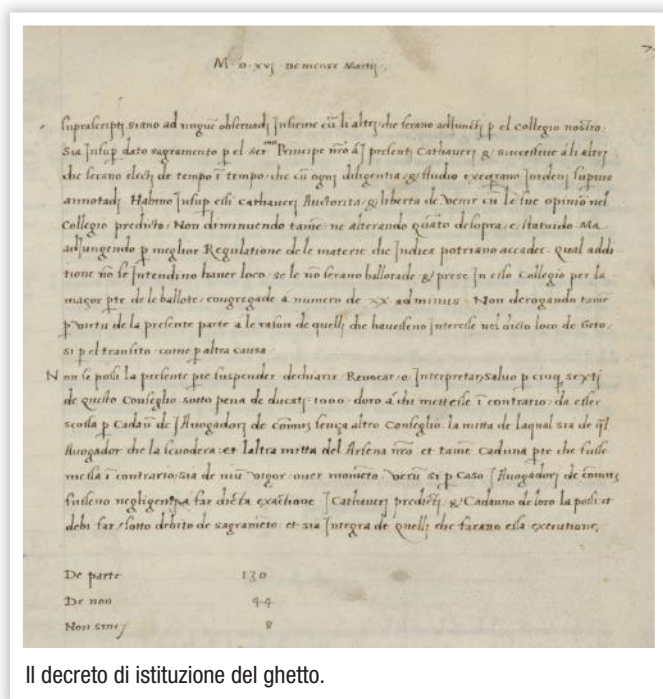 M·D·xvj· De mense Martij·
suprascriptj siano ad unguē observadj Insieme cū li altrj che serano adjunctj p el Collegio nostro·
Sia Insup dato sagramento p el ser.mo Principe nrō ā j presentj Cathaverj & successive à li altrj
che serano electj de tempo ī tempo, che cū ognj diligentia, & studio exequano Jordenj supius
annotadj Habino Insup essi cathaverj Auctorita, & liberta de venir cū le sue opinio nel
Collegio predicto, Non diminuendo tamē ne alterando quāto desopra, e, statuido Ma
adjungendo p meglior Regulatione de le materie che Indies potriano accader: qual addi
tione nō se Intendino haver loco se le nō serano ballotade & prese In esso Collegio per la
maçor pte de le ballote, congregade a numero de xx. ad minus· Non derogando tamē
p virtu de la presente parte a le rason de quellj che havesseno Interesse nel dicto loco de Geto,
si p el transito come p altra causa·
Non se possi la presente pte suspender dechiarir Revocar·o· Interpretar, Salvo p cinq sextj
de questo Conseglio sotto pena de ducatj·1000·doro a chi mettesse ī contrario: da esser
scossa p Cadaū de j Avogadorj de comūj sença altro Conseglio la mitta de laqual sia de ql
Avogador che la scuodera: et laltra mitta del Arsena nrō et tamē Caduna pte che fusse
messa ī contrario, sia de niū vigor, over momēto· verū si p Caso J Avogadorj de comūj
fusseno negligentj a far dicta exactione J Cathaverj predictj & Cadanno de loro la possi et
debi far, sotto debito de sagramēto et sia Integra de quellj che farano essa executione,
De parte 130
De non 44
Non sincj 8
Il decreto di istituzione del ghetto.